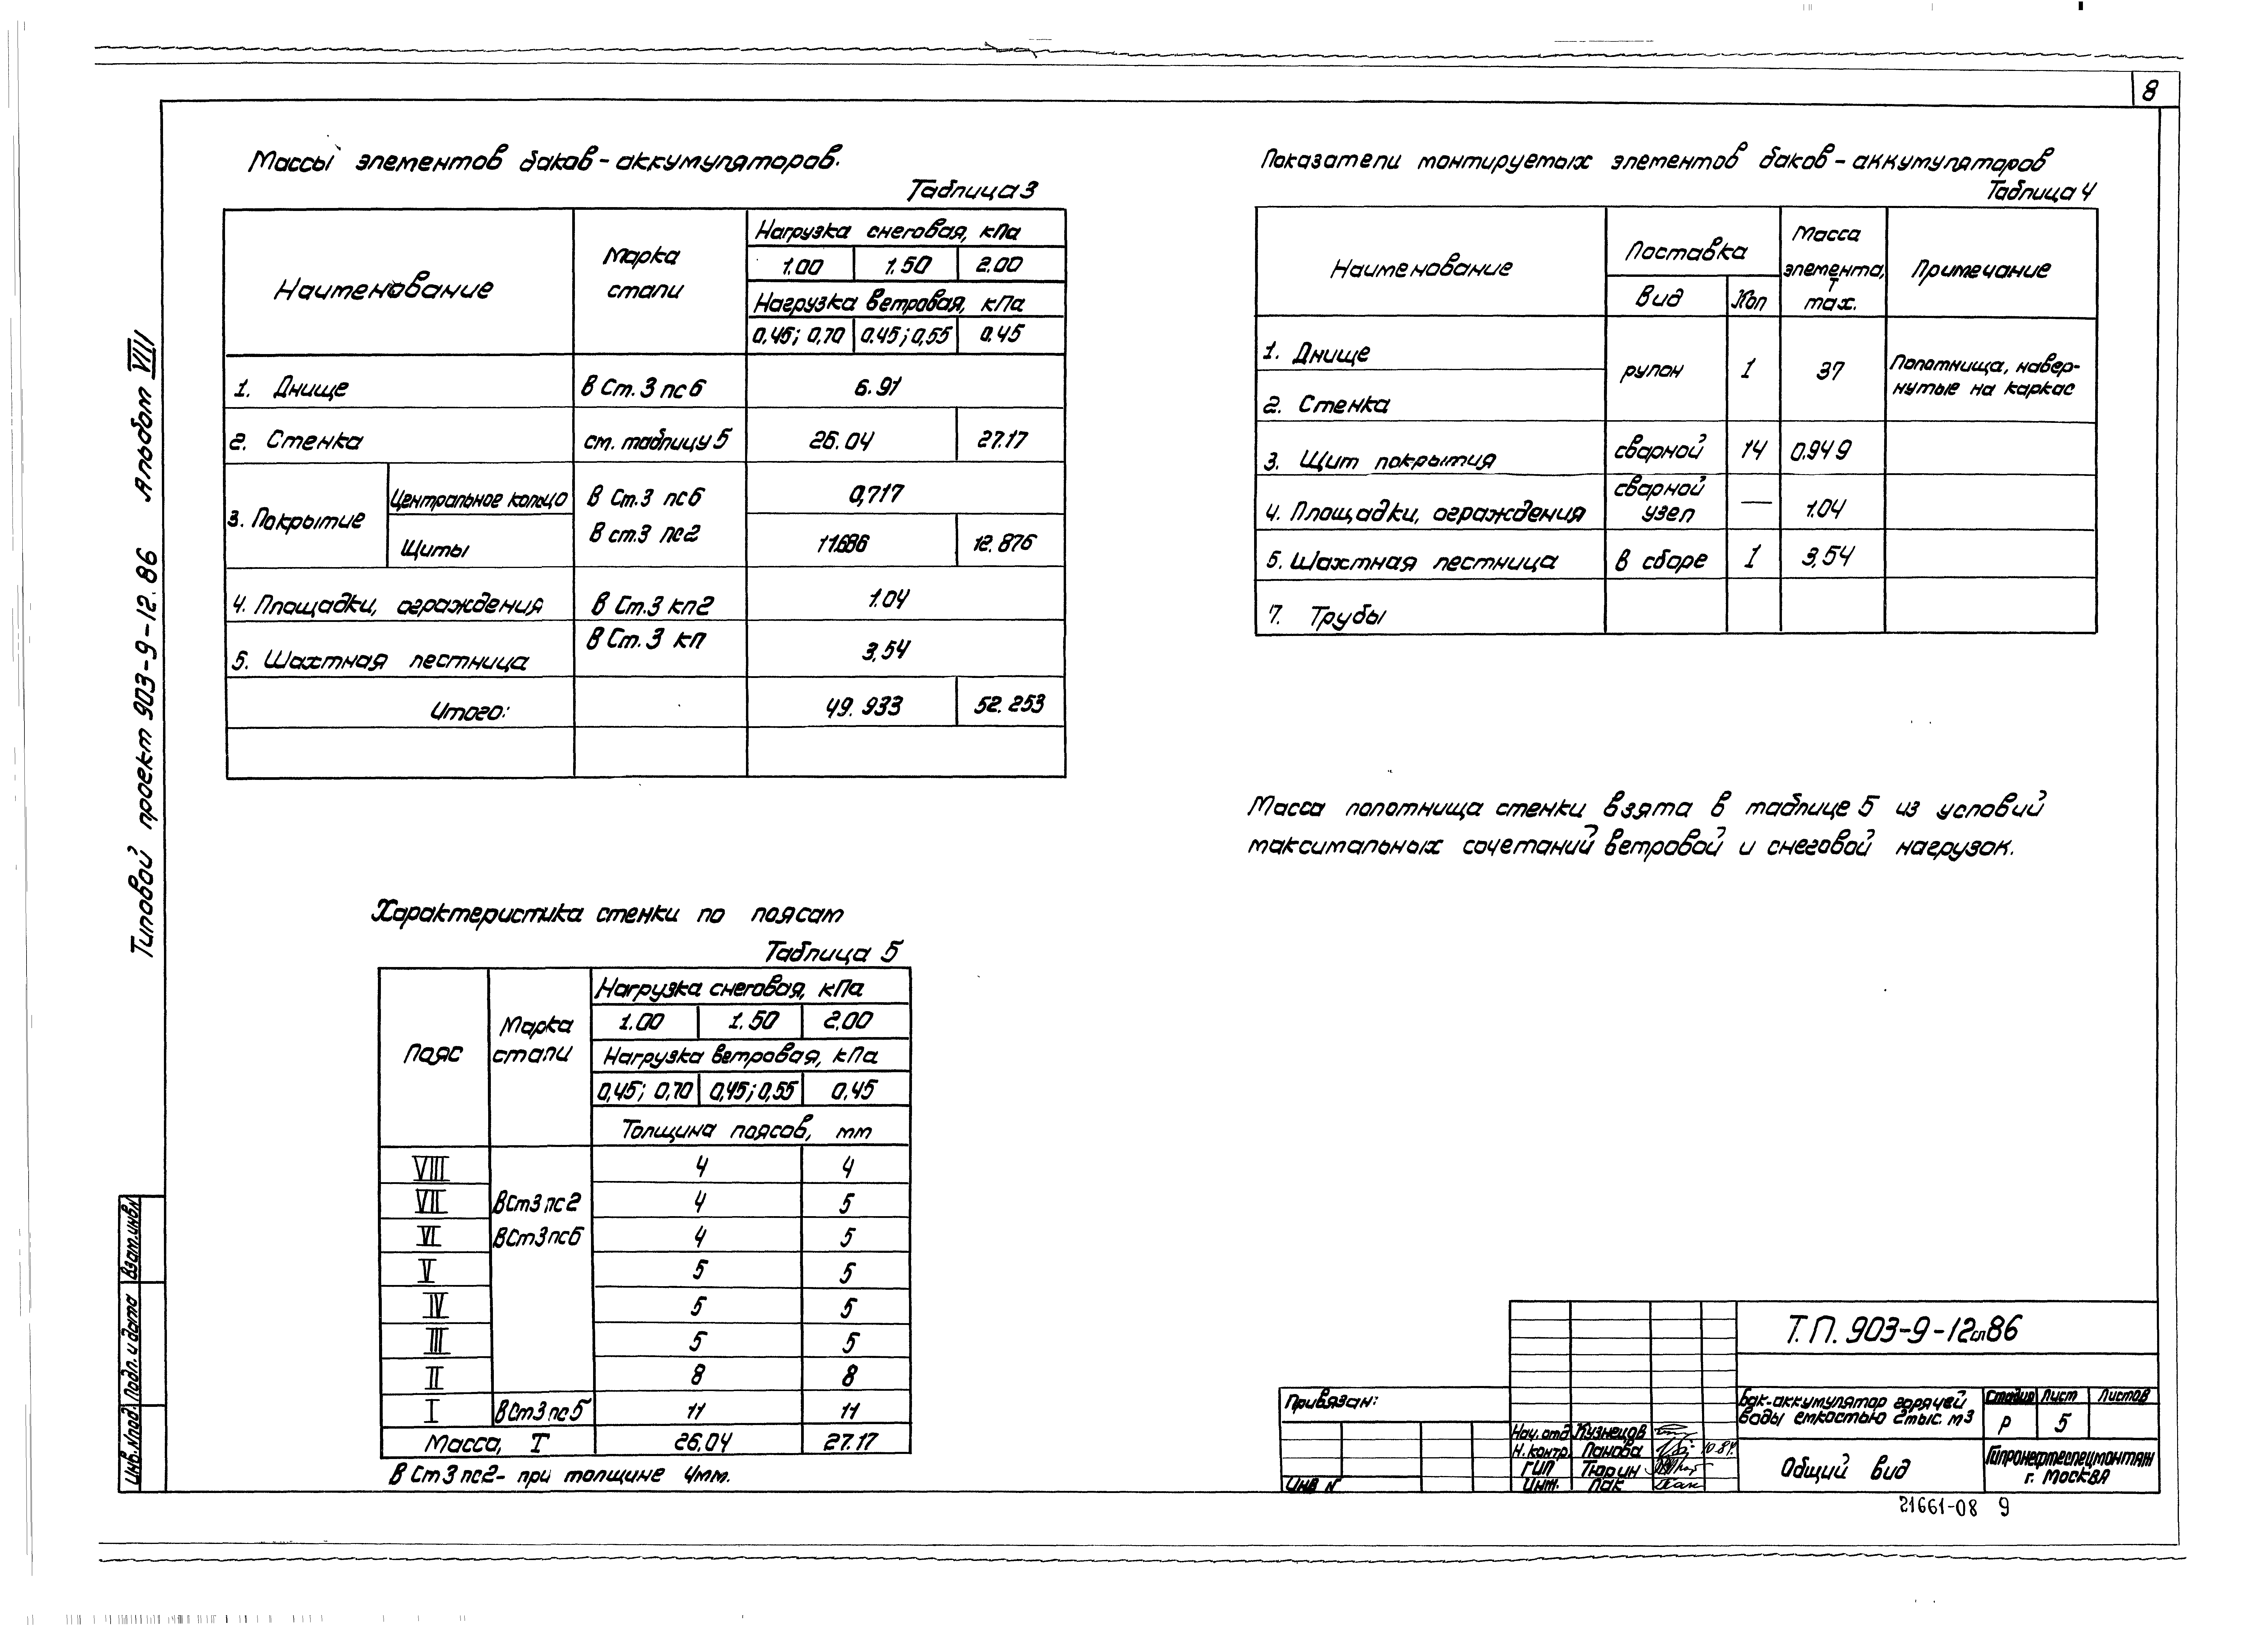 8
Массы элементов баков-аккумуляторов.
Таблица 3
Наименование
Марка стали
Нагрузка снеговая, кПа
1.00 1.50 2.00
Нагрузка ветровая, кПа
0,45; 0,70 0.45; 0,55 0.45
1. Днище В Ст.3 пс6 6.91
2. Стенка см. таблицу 5 26.04 27.17
3. Покрытие
Центральное кольцо В Ст.3 пс6 0,717
Щиты В ст.3 пс2 11.686 12.876
4. Площадки, ограждения В Ст.3 кп2 1.04
5. Шахтная лестница В Ст.3 кп 3,54
Итого: 49.933 52.253
Показатели монтируемых элементов баков-аккумуляторов
Таблица 4
Наименование
Поставка
Вид Кол
Масса
элемента,
т
max.
Примечание
1. Днище
2. Стенка
рулон 1 37
Полотнища, навер-
нутые на каркас
3. Щит покрытия сварной 14 0.949
4. Площадки, ограждения сварной узел — 1.04
5. Шахтная лестница в сборе 1 3,54
7. Трубы
Масса полотнища стенки взята в таблице 5 из условий
максимальных сочетаний ветровой и снеговой нагрузок.
Характеристика стенки по поясам
Таблица 5
Пояс
Марка
стали
Нагрузка снеговая, кПа
1.00 1.50 2.00
Нагрузка ветровая, кПа
0,45; 0,70 0,45; 0,55 0.45
Толщина поясов, мм
VIII 4 4
VII ВСт3пс2 4 5
VI ВСт3пс6 4 5
V 5 5
IV 5 5
III 5 5
II 8 8
I ВСт3пс5 11 11
Масса, Т 26.04 27.17
ВСт3пс2- при толщине 4мм.
Типовой проект 903-9-12.86 Альбом VIII
Инв.№под. Подп. и дата Взам.инв.№
Привязан:
Инв №
Нач. отд Кузнецов
Н. контр. Панова 10.84
ГИП Тюрин
Инж. Пак
Т.П. 903-9-12сп86
Бак-аккумулятор горячей
воды емкостью 2тыс. м3
Стадия Лист Листов
Р 5
Общий вид
Гипронефтеспецмонтаж
г. Москва
21661-08 9